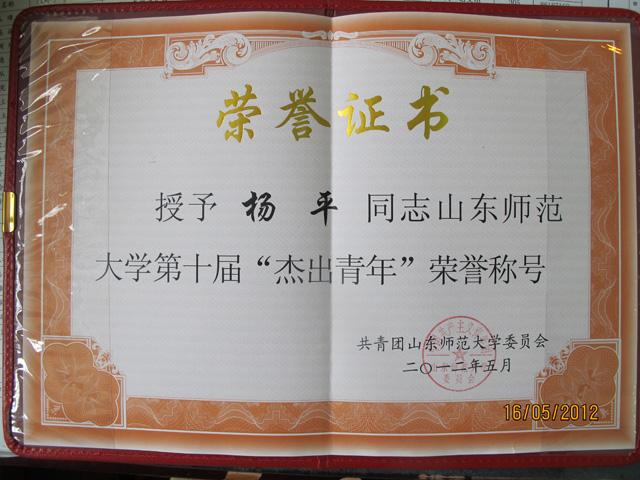 荣誉证书
授予 杨 平 同志山东师范
大学第十届“杰出青年”荣誉称号
共青团山东师范大学委员会
二〇一二年五月
16/05/2012